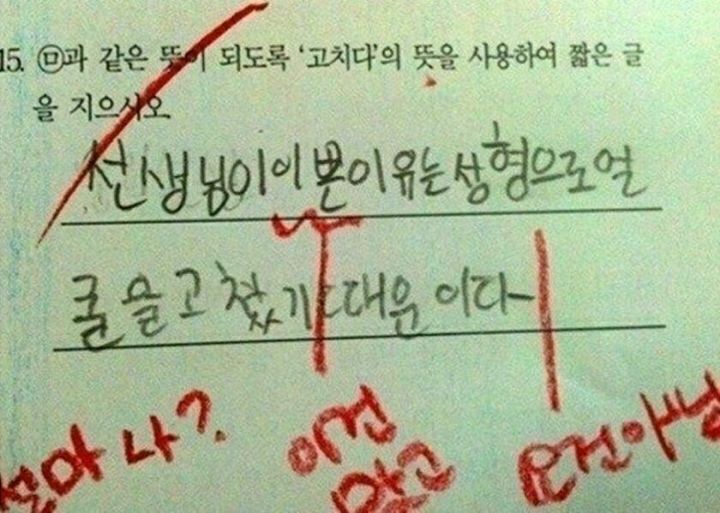 15. ㉤과 같은 뜻이 되도록 '고치다'의 뜻을 사용하여 짧은 글
을 지으시오.
선생님이 이쁜 이유는 성형으로 얼
굴을 고쳤기 때문이다
설마 나?
이건
맞고
요건 아님